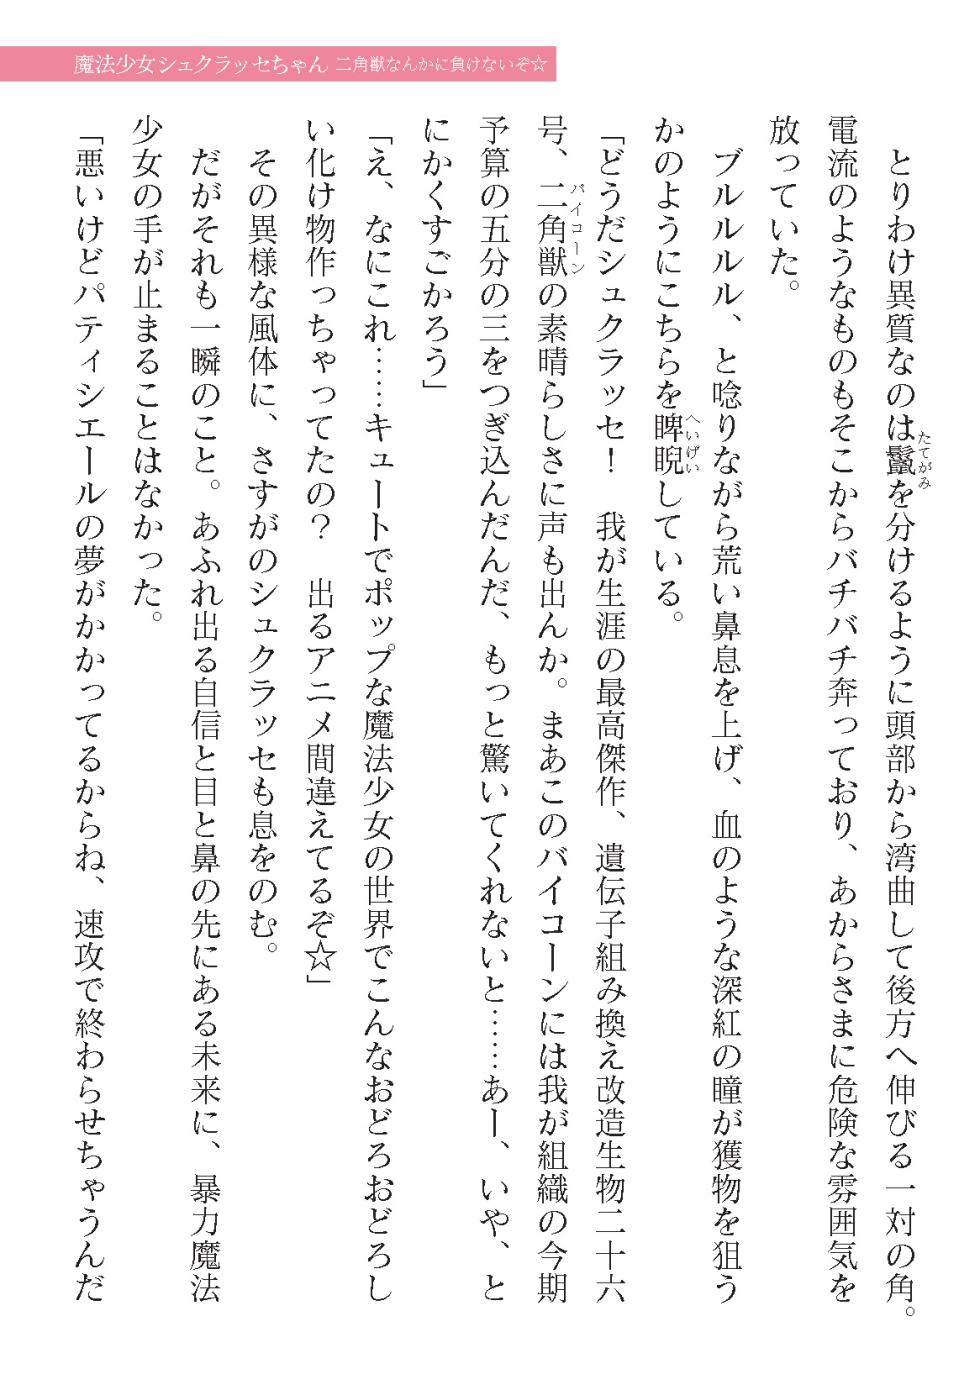 魔法少女シュクラッセちゃん 二角獣なんかに負けないぞ☆
　とりわけ異質なのは鬣を分けるように頭部から湾曲して後方へ伸びる一対の角。
電流のようなものもそこからバチバチ奔っており、あからさまに危険な雰囲気を
放っていた。
　ブルルルル、と唸りながら荒い鼻息を上げ、血のような深紅の瞳が獲物を狙う
かのようにこちらを睥睨している。
「どうだシュクラッセ！　我が生涯の最高傑作、遺伝子組み換え改造生物二十六
号、二角獣の素晴らしさに声も出んか。まあこのバイコーンには我が組織の今期
予算の五分の三をつぎ込んだんだ、もっと驚いてくれないと……あー、いや、と
にかくすごかろう」
「え、なにこれ……キュートでポップな魔法少女の世界でこんなおどろおどろし
い化け物作っちゃってたの？　出るアニメ間違えてるぞ☆」
　その異様な風体に、さすがのシュクラッセも息をのむ。
　だがそれも一瞬のこと。あふれ出る自信と目と鼻の先にある未来に、暴力魔法
少女の手が止まることはなかった。
「悪いけどパティシエールの夢がかかってるからね、速攻で終わらせちゃうんだ
たてがみ
へいげい
バイコーン